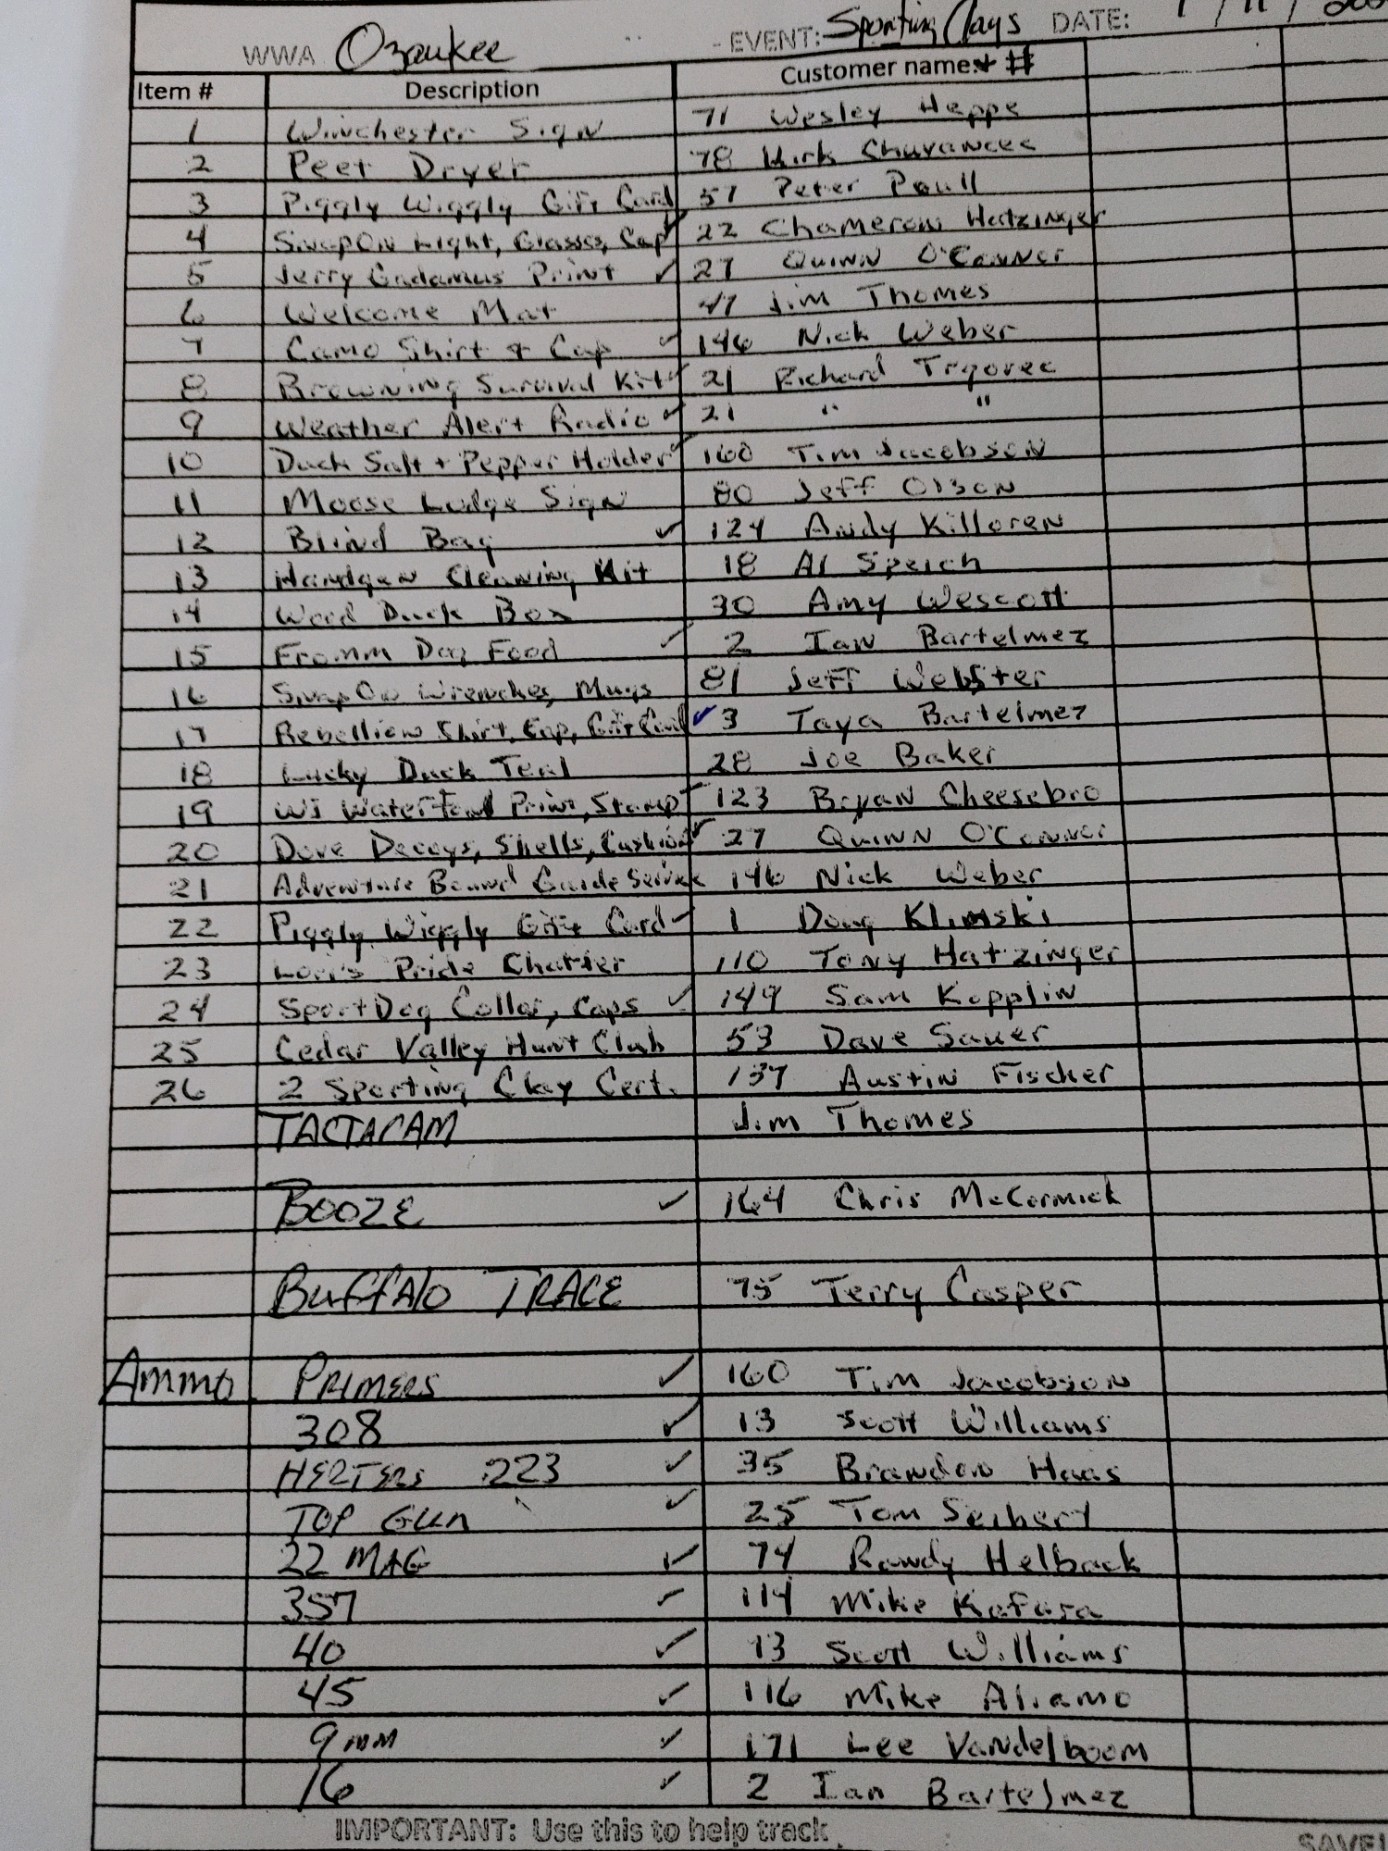 WWA Ozaukee - EVENT: Sporting Clays DATE: 11/
Item # Description Customer name + #
1 Winchester Sign 71 Wesley Heppe
2 Peet Dryer 78 Kirk
3 Piggly Wiggly Gift Card 57 Peter Paull
4 SnapOn Light, Glasses, Cap ✓ 22 Chameron Hatzinger
5 Jerry Gadamus Print ✓ 27 Quinn O'Conner
6 Welcome Mat 47 Jim Thomes
7 Camo Shirt + Cap ✓ 146 Nick Weber
8 Browning Survival Kit ✓ 21 Richard
9 Weather Alert Radio ✓ 21 " "
10 Duck Salt + Pepper Holder ✓ 160 Tim Jacobson
11 Moose Lodge Sign 80 Jeff Olson
12 Blind Bag ✓ 124 Andy Killoren
13 Handgun Cleaning Kit 18 Al Speich
14 Wood Duck Box 30 Amy Wescott
15 Fromm Dog Food ✓ 2 Ian Bartelmez
16 SnapOn Wrenches, Mugs 81 Jeff Webster
17 Rebellion Shirt, Cap, Gift Card ✓ 3 Taya Bartelmez
18 Lucky Duck Teal 28 Joe Baker
19 WI Waterfowl Print, Stamp ✓ 123 Bryan Cheesebro
20 Dove Decoys, Shells, Cushion ✓ 27 Quinn O'Conner
21 Adventure Bound Guide Service 146 Nick Weber
22 Piggly Wiggly Gift Card ✓ 1 Doug Klimski
23 Lori's Pride Charter 110 Tony Hatzinger
24 SportDog Collar, Caps ✓ 149 Sam Kopplin
25 Cedar Valley Hunt Club 53 Dave Sauer
26 2 Sporting Clay Cert. 137 Austin Fischer
TACTACAM Jim Thomes
BOOZE ✓ 164 Chris McCormick
Buffalo TRACE 75 Terry Casper
Ammo PRIMERS ✓ 160 Tim Jacobson
308 ✓ 13 Scott Williams
HERTERS .223 ✓ 35 Brandon Haas
TOP GUN ✓ 25 Tom Seibert
22 MAG ✓ 74 Randy Helback
357 ✓ 114 Mike Kafura
40 ✓ 13 Scott Williams
45 ✓ 116 Mike Aliamo
9mm ✓ 171 Lee Vandelboom
16 ✓ 2 Ian Bartelmez
IMPORTANT: Use this to help track
SAVE!